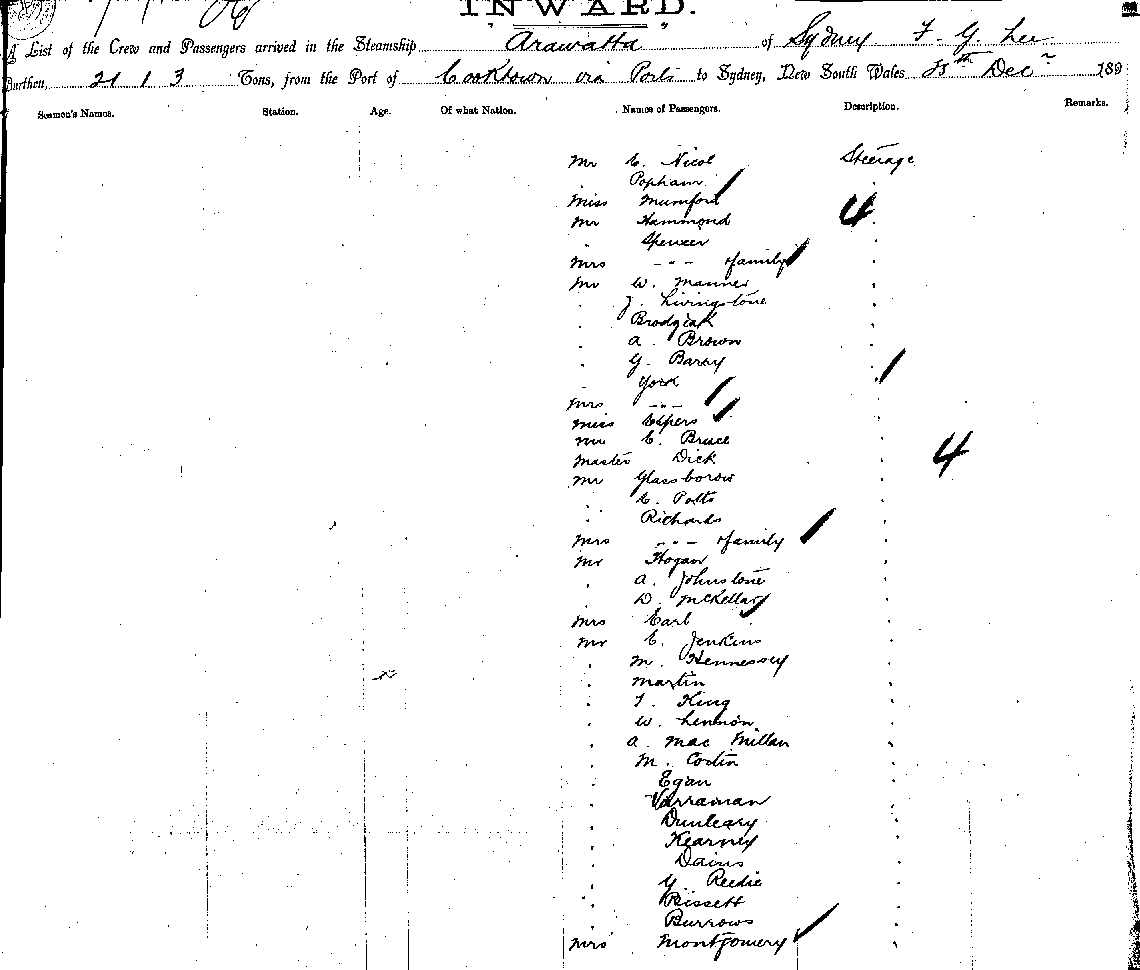 INWARD.
A List of the Crew and Passengers arrived in the Steamship "Arawatta" of Sydney F. G. Lee
Burthen, 2113 Tons, from the Port of Cooktown via Ports to Sydney, New South Wales Dec 189
Seamen's Names. Station. Age. Of what Nation. Names of Passengers. Description. Remarks.
Mr C. Nicol Steerage
. Popham .
Miss Mumford . 4
Mr Hammond .
. Spencer .
Mrs -"- & family .
Mr W. Manner .
. J. Livingstone .
. Brodziak .
. A. Brown .
. G. Barry .
. York .
Mrs -"- .
Miss .
Mr C. Bruce .
Master Dick . 4
Mr Glassborow .
. C. Potts .
. Richards .
Mrs -"- & family .
Mr Hogan .
. A. Johnstone .
. D. McKellar .
Mrs Earl .
Mr C. Jenkins .
. M. Hennessey .
. Martin .
. T. King .
. W. Lennon .
. A. Mac Millan .
. M. Costin .
. Egan .
. Varraman .
. Dunleary .
. Kearney .
. Dains .
. G. Reedie .
. Bissett .
. Burrows .
Mrs Montgomery .